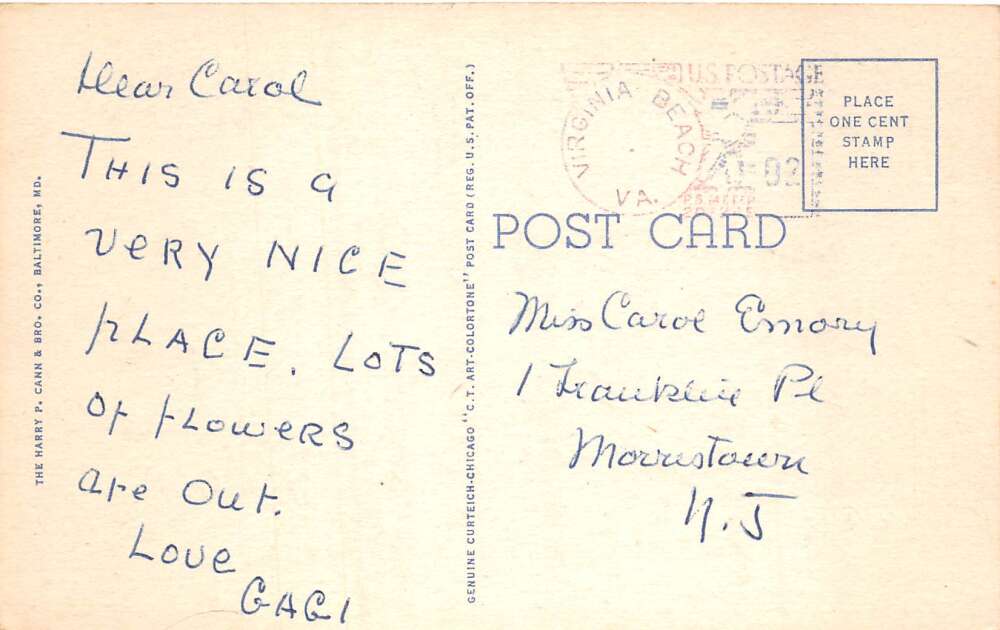 Dear Carol
THIS IS A
VERY NICE
PLACE. LOTS
OF FLOWERS
are Out.
LOVE
GAGI
THE HARRY P. CANN & BRO. CO., BALTIMORE, MD.
GENUINE CURTEICH-CHICAGO "C.T. ART-COLORTONE" POST CARD (REG. U.S. PAT. OFF.)
U.S. POSTAGE
VIRGINIA BEACH
VA.
02
PLACE
ONE CENT
STAMP
HERE
POST CARD
Miss Carol Emory
1 Franklin Pl
Morristown
N. J